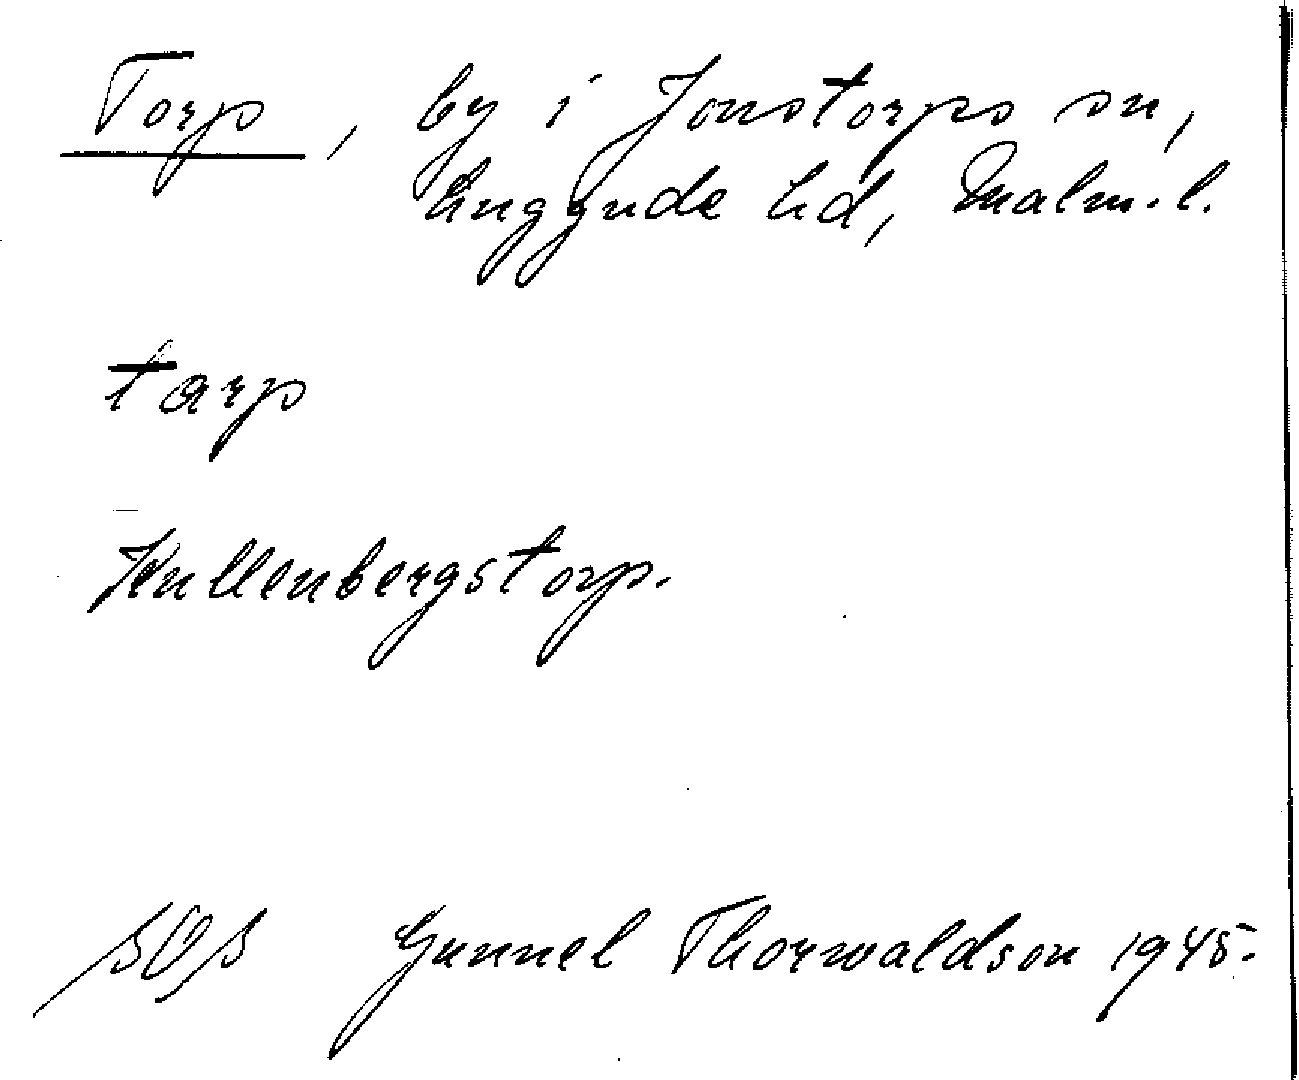 Torp, by i Jonstorps sn,
Luggude hd, Malm. l.
tarp
Kullenbergstorp.
SOS Gunnel Thorwaldson 1945.